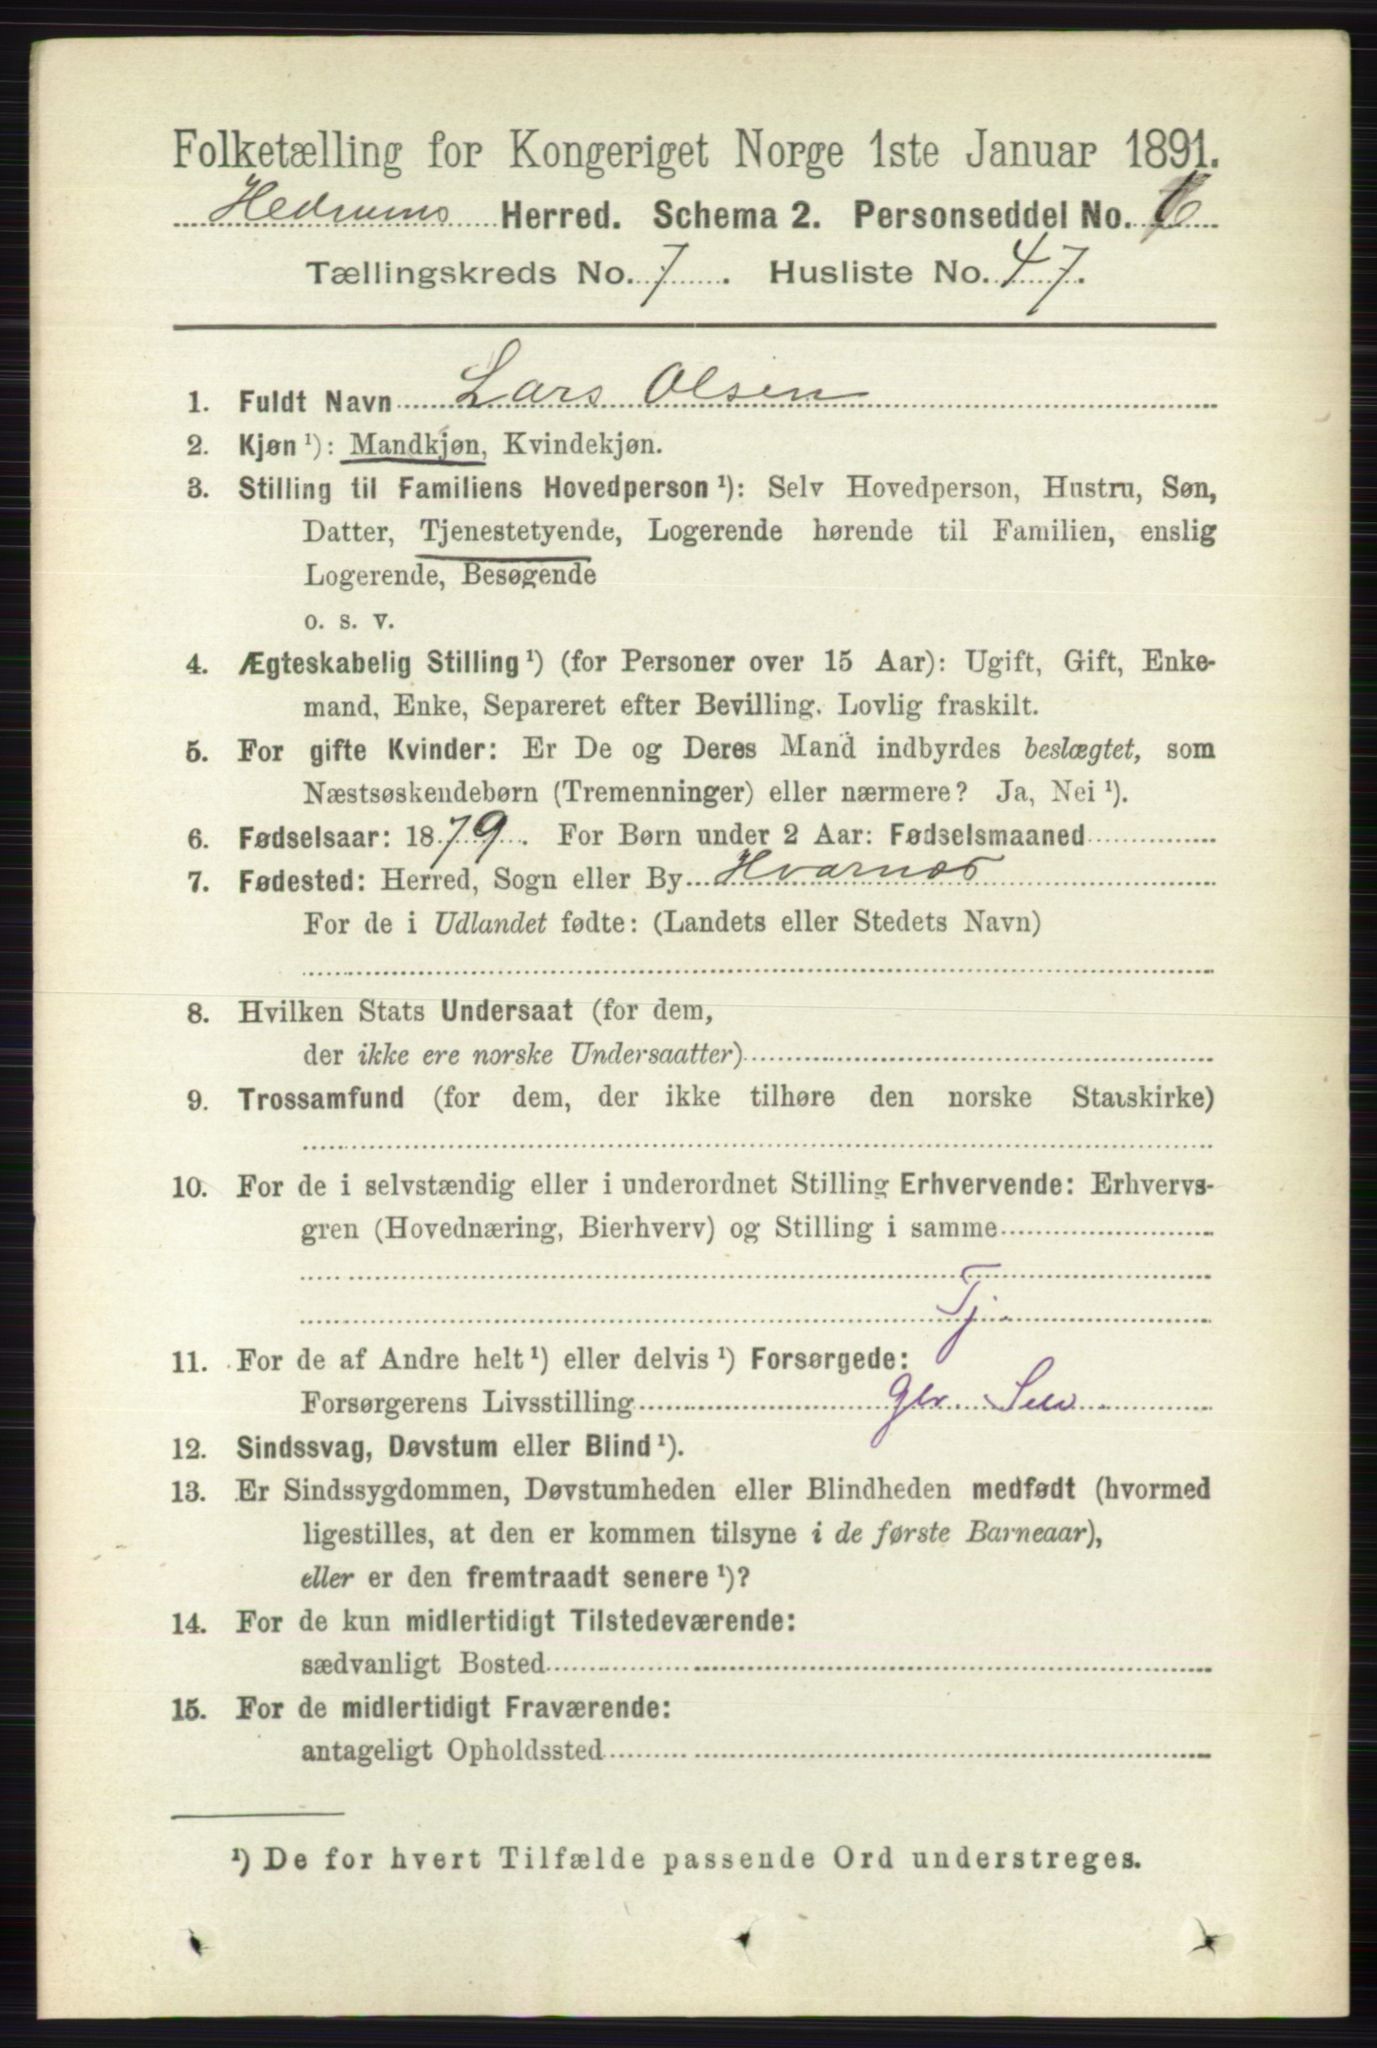 Folketælling for Kongeriget Norge 1ste Januar 1891.
Hedrums Herred. Schema 2. Personseddel No. 6
Tællingskreds No. 7. Husliste No. 47.
1. Fuldt Navn Lars Olsen
2. Kjøn ¹): Mandkjøn, Kvindekjøn.
3. Stilling til Familiens Hovedperson ¹): Selv Hovedperson, Hustru, Søn,
Datter, Tjenestetyende, Logerende hørende til Familien, enslig
Logerende, Besøgende
o. s. v.
4. Ægteskabelig Stilling ¹) (for Personer over 15 Aar): Ugift, Gift, Enke-
mand, Enke, Separeret efter Bevilling. Lovlig fraskilt.
5. For gifte Kvinder: Er De og Deres Mand indbyrdes beslægtet, som
Næstsøskendebørn (Tremenninger) eller nærmere? Ja, Nei ¹).
6. Fødselsaar: 1879. For Børn under 2 Aar: Fødselsmaaned
7. Fødested: Herred, Sogn eller By Hvarnes
For de i Udlandet fødte: (Landets eller Stedets Navn)
8. Hvilken Stats Undersaat (for dem,
der ikke ere norske Undersaatter)
9. Trossamfund (for dem, der ikke tilhøre den norske Statskirke)
10. For de i selvstændig eller i underordnet Stilling Erhvervende: Erhvervs-
gren (Hovednæring, Bierhverv) og Stilling i samme
Tj.
11. For de af Andre helt ¹) eller delvis ¹) Forsørgede:
Forsørgerens Livsstilling
12. Sindssvag, Døvstum eller Blind ¹).
13. Er Sindssygdommen, Døvstumheden eller Blindheden medfødt (hvormed
ligestilles, at den er kommen tilsyne i de første Barneaar),
eller er den fremtraadt senere ¹)?
14. For de kun midlertidigt Tilstedeværende:
sædvanligt Bosted
15. For de midlertidigt Fraværende:
antageligt Opholdssted
¹) De for hvert Tilfælde passende Ord understreges.